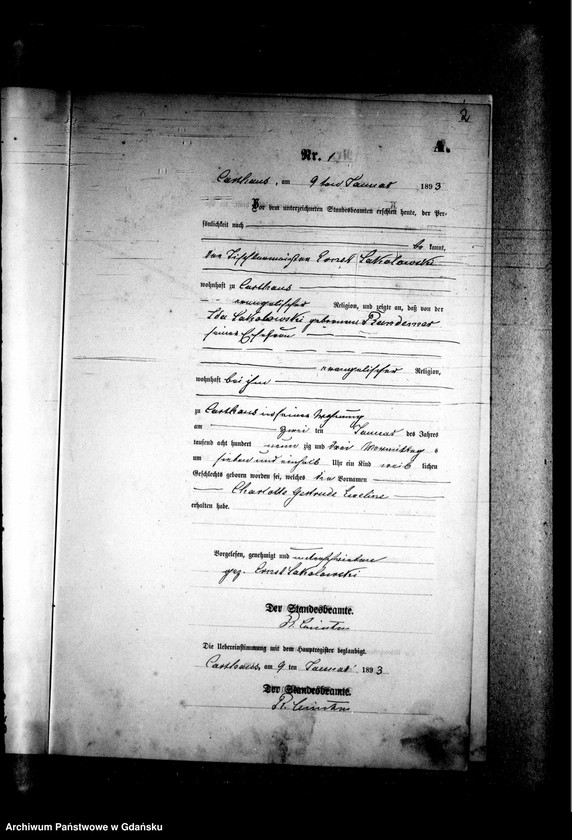 2
A.
Nr. 1
Carthaus, am 9 ten Januar 1893
Vor dem unterzeichneten Standesbeamten erschien heute, der Per-
sönlichkeit nach
be kannt,
der Tischlermeister Ernst Sakolowski
wohnhaft zu Carthaus
evangelischer Religion, und zeigte an, daß von der
Ida Sakolowski geborenen
seiner Ehefrau
evangelischer Religion,
wohnhaft bei ihm
zu Carthaus in seiner Wohnung
am zwei ten Januar des Jahres
tausend acht hundert neun zig und drei Vormittag s
um sieben und einhalb Uhr ein Kind weib lichen
Geschlechts geboren worden sei, welches die Vornamen
Charlotte Gertrude Eveline
erhalten habe.
Vorgelesen, genehmigt und unterschrieben
gez. Ernst Sakolowski
Der Standesbeamte.
Die Uebereinstimmung mit dem Hauptregister beglaubigt.
Carthaus, am 9 ten Januar 1893
Der Standesbeamte.
Archiwum Państwowe w Gdańsku